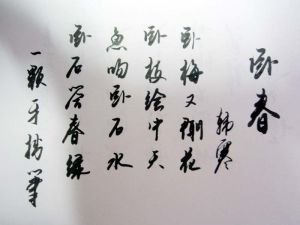 卧春
韩寒
卧梅又闻花
卧枝绘中天
鱼吻卧石水
卧石答春绿